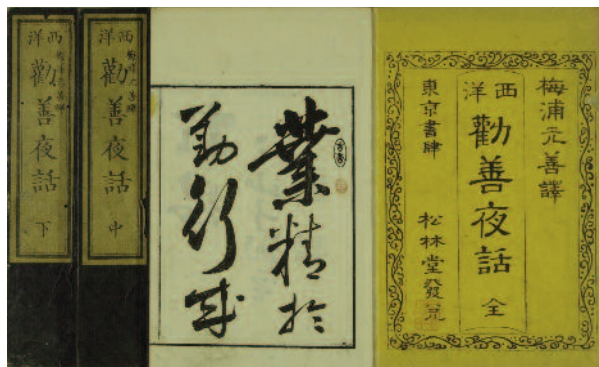 梅浦元善譯
西洋
勸善夜話 全
東京書肆 松林堂發兌
業精於
勤行成
梅浦元善譯
西洋
勸善夜話 中
梅浦元善譯
西洋
勸善夜話 下